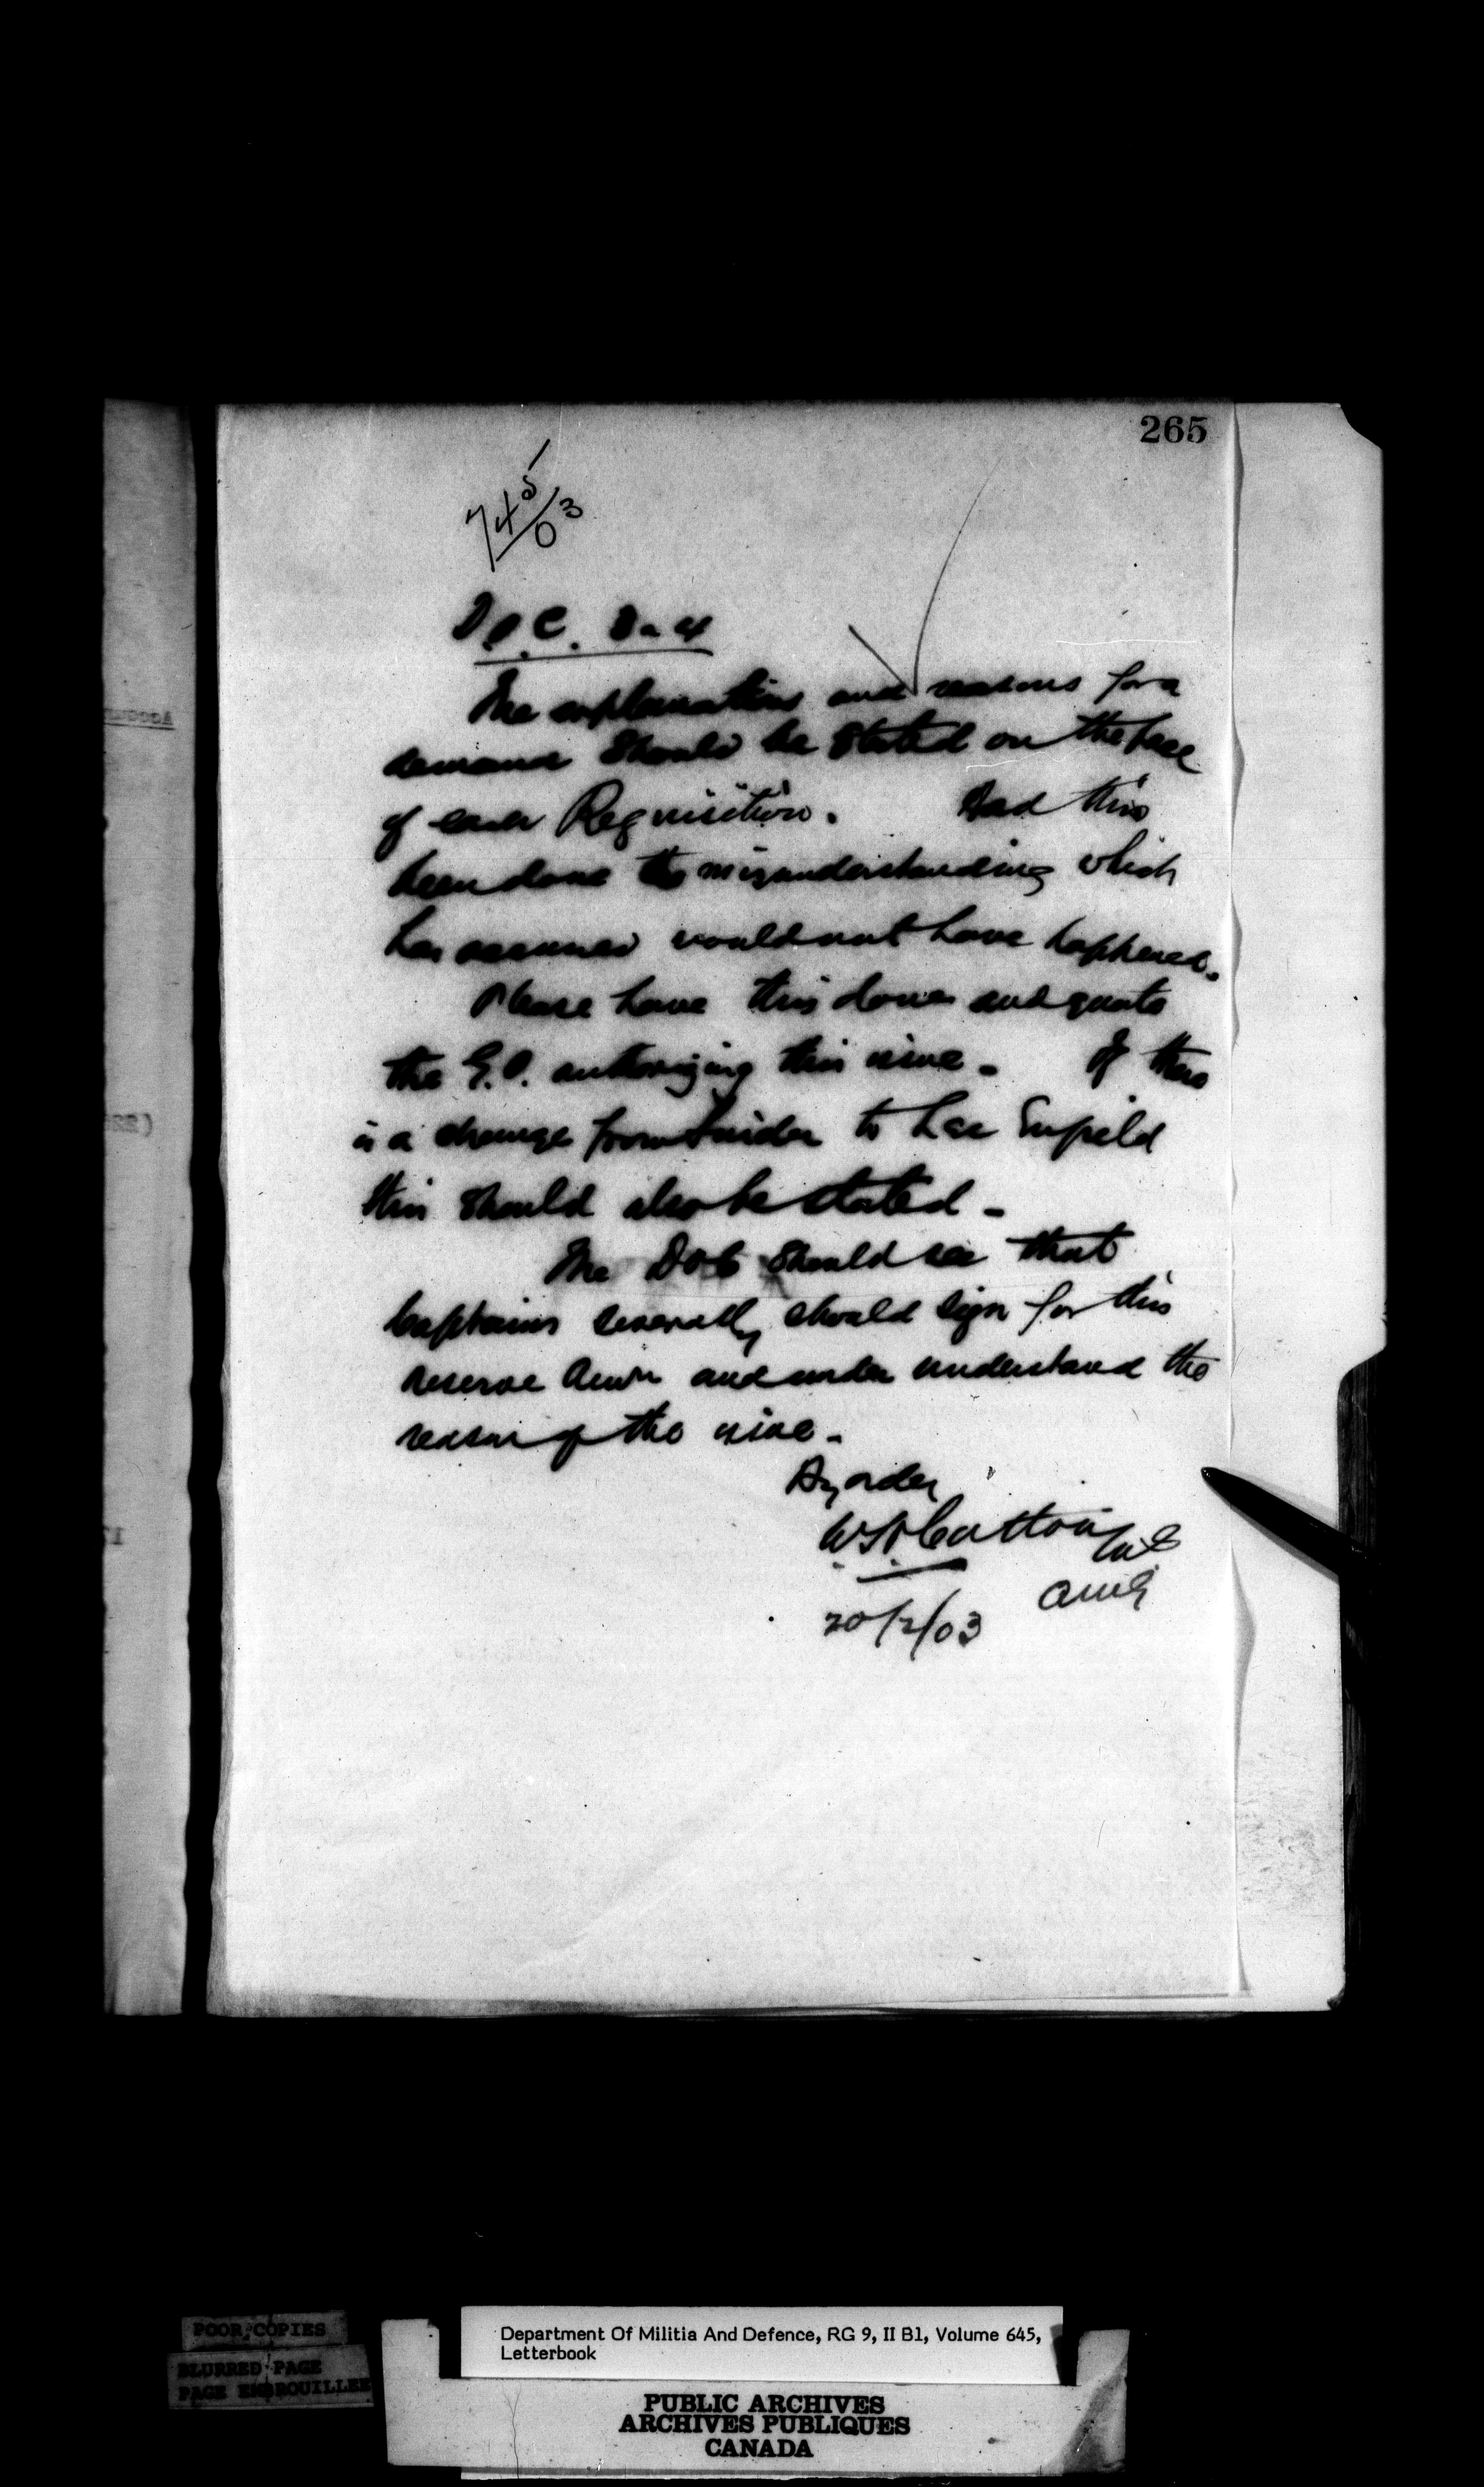 265
745/03
D.O.C. 3 & 4
The explanations and reasons for a
demand should be stated on the face
of each Requisition. Had this
been done the misunderstanding which
has occurred would not have happened.
Please have this done and quote
the G.O. authorizing this issue. If there
is a change from Snider to Lee Enfield
this should also be stated.
The DOC should see that
Captains severally should sign for this
reserve Amn and understand the
reason of the issue.
By order
Cotton
20/2/03
POOR COPIES
BLURRED PAGE
PAGE EMBROUILLEE
Department Of Militia And Defence, RG 9, II B1, Volume 645,
Letterbook
PUBLIC ARCHIVES
ARCHIVES PUBLIQUES
CANADA